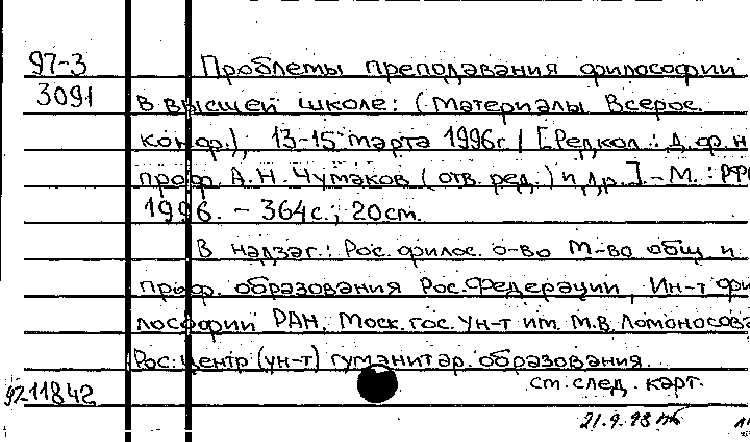 97-3 Проблемы преподавания философии
3091 в высшей школе: (Материалы Всерос.
конф.), 13-15 марта 1996г. / [Редкол.: д. ф. н.
проф. А.Н. Чумаков (отв. ред.) и др.] - М.: РФО
1996. - 364с.; 20см.
В надзаг.: Рос. филос. о-во М-во общ. и
проф. образования Рос. Федерации, Ин-т фи
лософии РАН, Моск. гос. ун-т им. М.В. Ломоносова
Рос. центр (ун-т) гуманитар. образования.
см. след. карт.
9211842
21.9.98